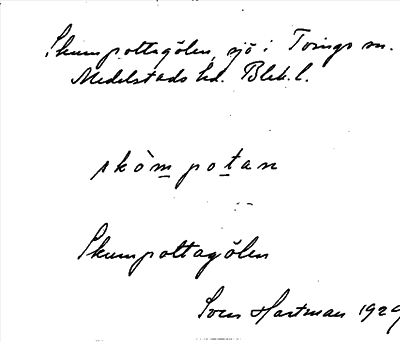 Skumpottagölen, sjö i Tvings sn.
Medelstads hd. Blek. l.
skòm potan
Skumpottagölen
Sven Hartman 1929